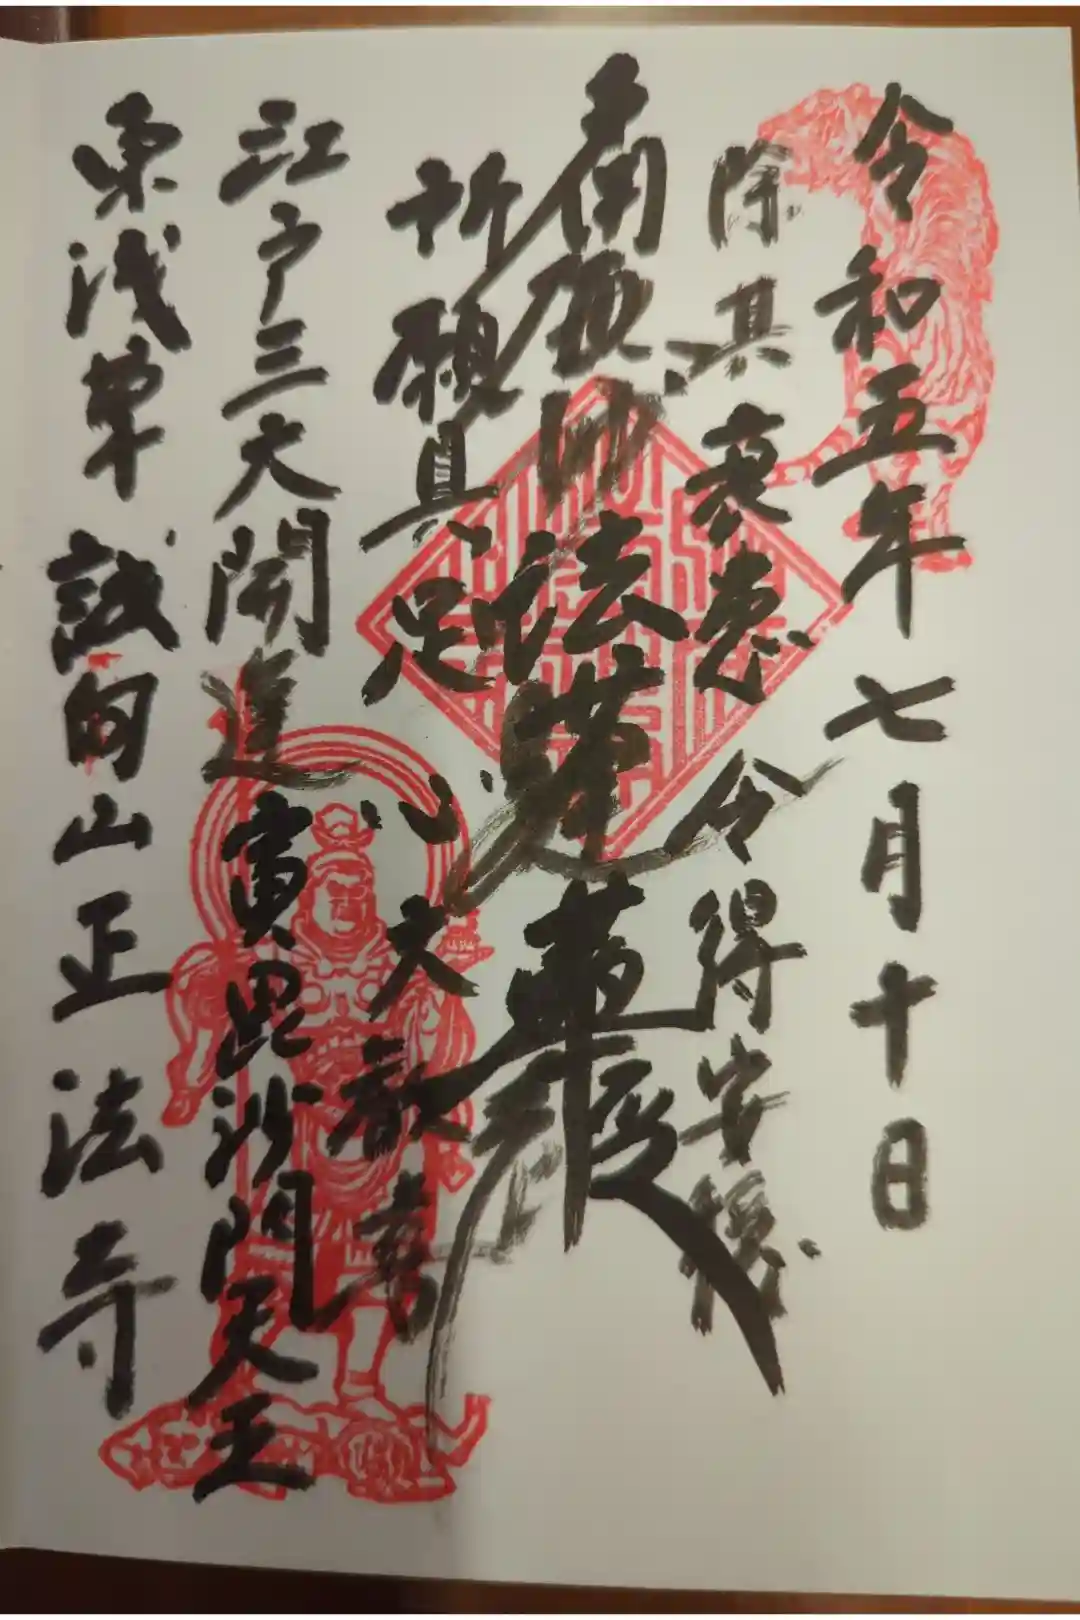 令和五年七月十日
除其衰患令得安穏
南無妙法蓮華経
所願具足心大歓喜
江戸三大開運寅毘沙門天王
東浅草誠向山正法寺